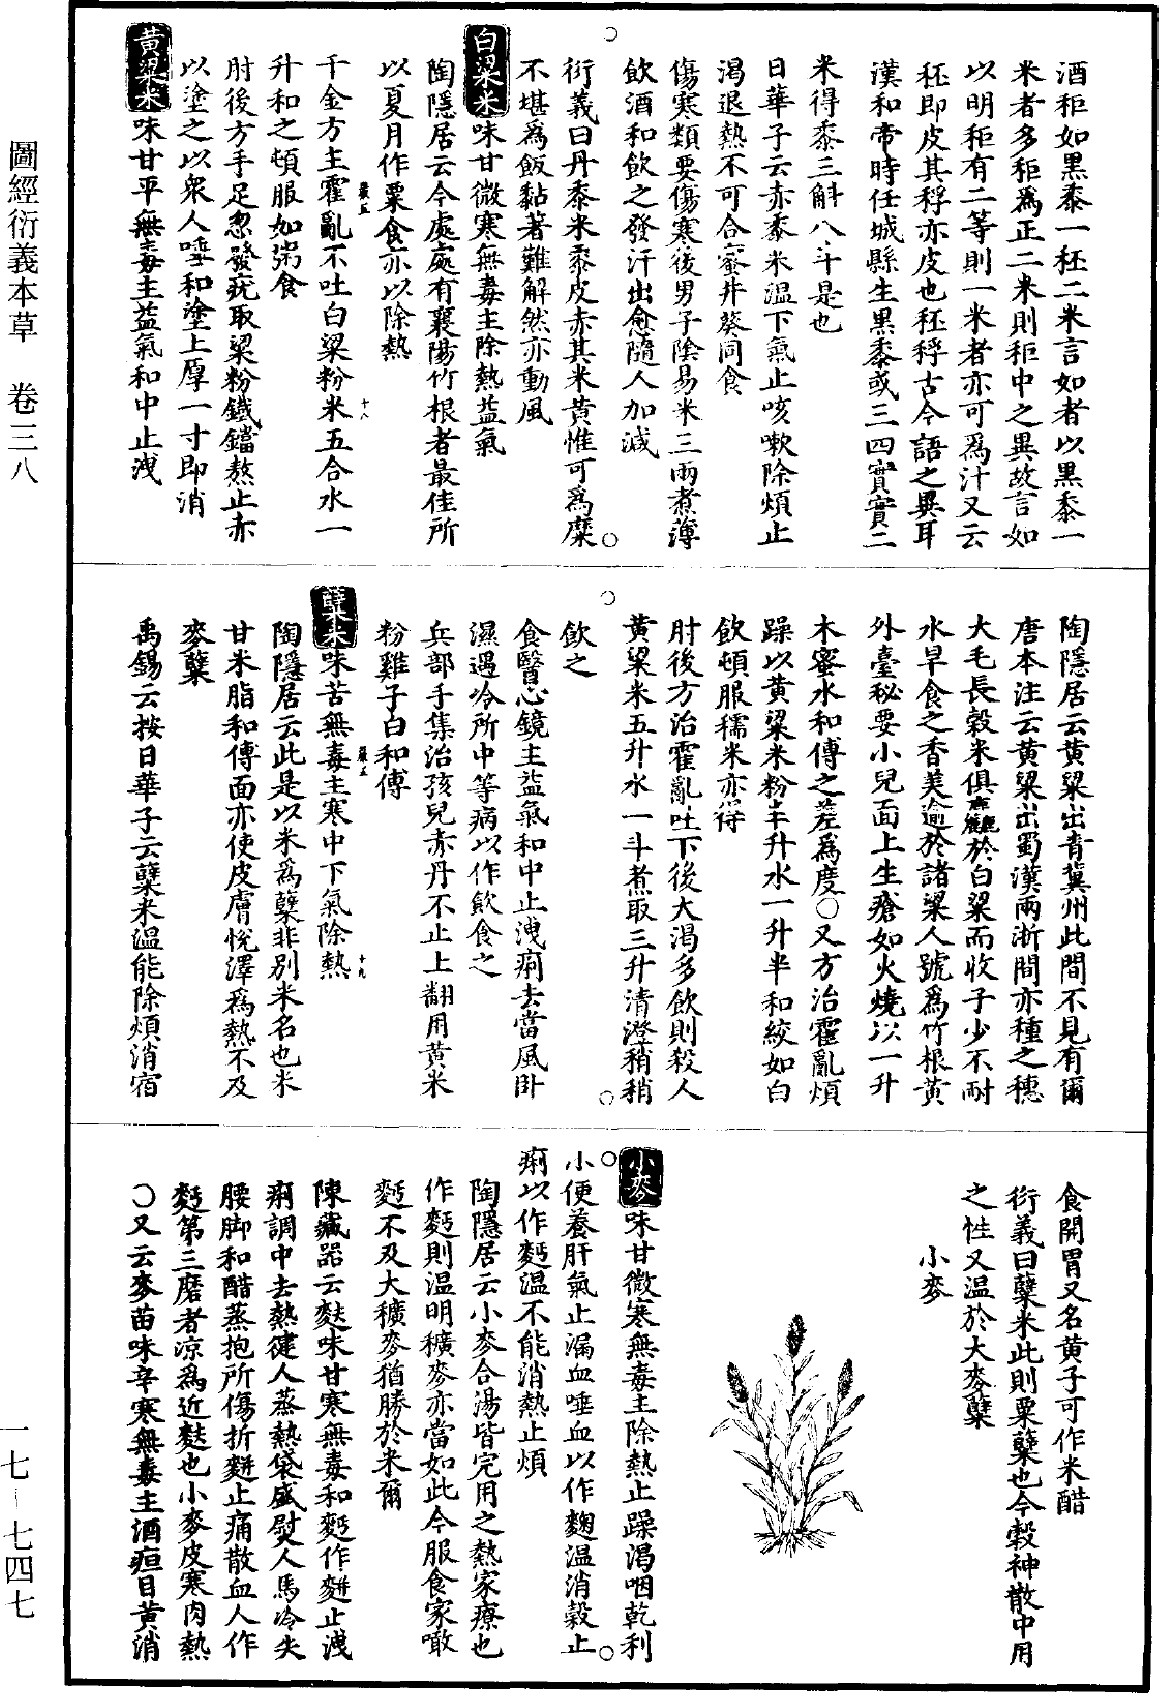 酒秬如黑黍一秠二米言如者以黑黍一
米者多秬爲正二米則秬中之異故言如
以明秬有二等則一米者亦可爲汁又云
秠即皮其稃亦皮也秠稃古今語之異耳
漢和帝時任城縣生黑黍或三四實實二
米得黍三斛八斗是也
日華子云赤黍米温下氣止咳嗽除煩止
渴退熱不可合蜜并葵同食
傷寒類要傷寒後男子陰易米三兩煮薄
飲酒和飲之發汗出愈隨人加減
衍義曰丹黍米黍皮赤其米黄惟可爲糜
不堪爲飯黏著難解然亦動風
白粱米味甘微寒無毒主除熱益氣
陶隱居云今處處有襄陽竹根者最佳所
以夏月作粟食亦以除熱
嚴五 十八
千金方主霍亂不吐白粱粉米五合水一
升和之頓服如粥食
肘後方手足忽發疣取粱粉鐵鐺熬止赤
以塗之以衆人唾和塗上厚一寸即消
黄粱米味甘平無毒主益氣和中止洩
陶隱居云黄粱出青冀州此間不見有爾
唐本注云黄粱出蜀漢兩浙間亦種之穗
大毛長榖米俱麤於白粱而收子少不耐
水旱食之香美逾於諸粱人號爲竹根黄
外臺秘要小兒面上生瘡如火燒以一升
木蜜水和傅之差爲度○又方治霍亂煩
躁以黄粱米粉半升水一升半和絞如白
飲頓服糯米亦得
肘後方治霍亂吐下後大渴多飲則殺人
黄粱米五升水一斗煮取三升清澄稍稍
飲之
食醫心鏡主益氣和中止洩痢去當風卧
濕遇冷所中等病以作飲食之
兵部手集治孩兒赤丹不止上翻用黄米
粉雞子白和傅
嚴五 十九
糵米味苦無毒主寒中下氣除熱
陶隱居云此是以米爲糵非别米名也米
甘米脂和傅面亦使皮膚悦澤爲熱不及
麥糵
禹錫云按日華子云糵米温能除煩消宿
食開胃又名黄子可作米醋
衍義曰糵米此則粟糵也今榖神散中用
之性又温於大麥糵
小麥
小麥味甘微寒無毒主除熱止躁渴咽乾利
小便養肝氣止漏血唾血以作麴温消榖止
痢以作麪温不能消熱止煩
陶隱居云小麥合湯皆完用之熱家療也
作麪則温明穬麥亦當如此今服食家噉
麪不及大穬麥猶勝於米爾
陳藏器云麩味甘寒無毒和麪作䴵止洩
痢調中去熱健人蒸熱袋盛熨人馬冷失
腰脚和醋蒸抱所傷折䴵止痛散血人作
麪第三磨者凉爲近麩也小麥皮寒肉熱
○又云麥苗味辛寒無毒主酒疸目黄消
圖經衍義本草 卷三八
一七－七四七